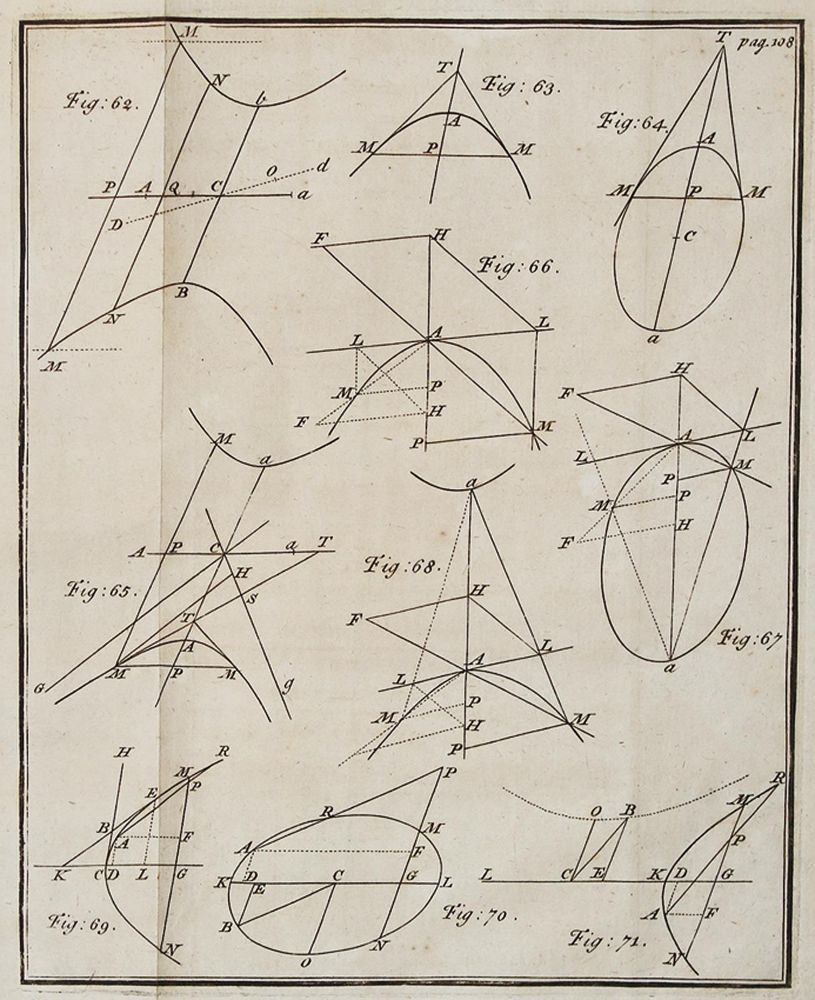 pag. 108
Fig: 62.
M
N
b
P A Q C a
D
O
d
N
B
M
Fig: 63.
T
A
M P M
Fig: 64.
T
A
M P M
C
a
Fig: 66.
F H
L A L
M P
F H
P M
Fig: 65.
M
a
A P C a T
H
S
T
A
G M P M g
Fig: 68.
a
H
F
L
A
L
P
M
H
P M
Fig: 67
H
F
L
A
L
M
P
M P
F H
a
Fig: 69.
H R
M
E P
B
A F
K C D L G
N
Fig: 70.
P
R
M
A F
K D E C G L
B
N
O
Fig: 71.
R
O B M
P
L C E K D G
A F
N